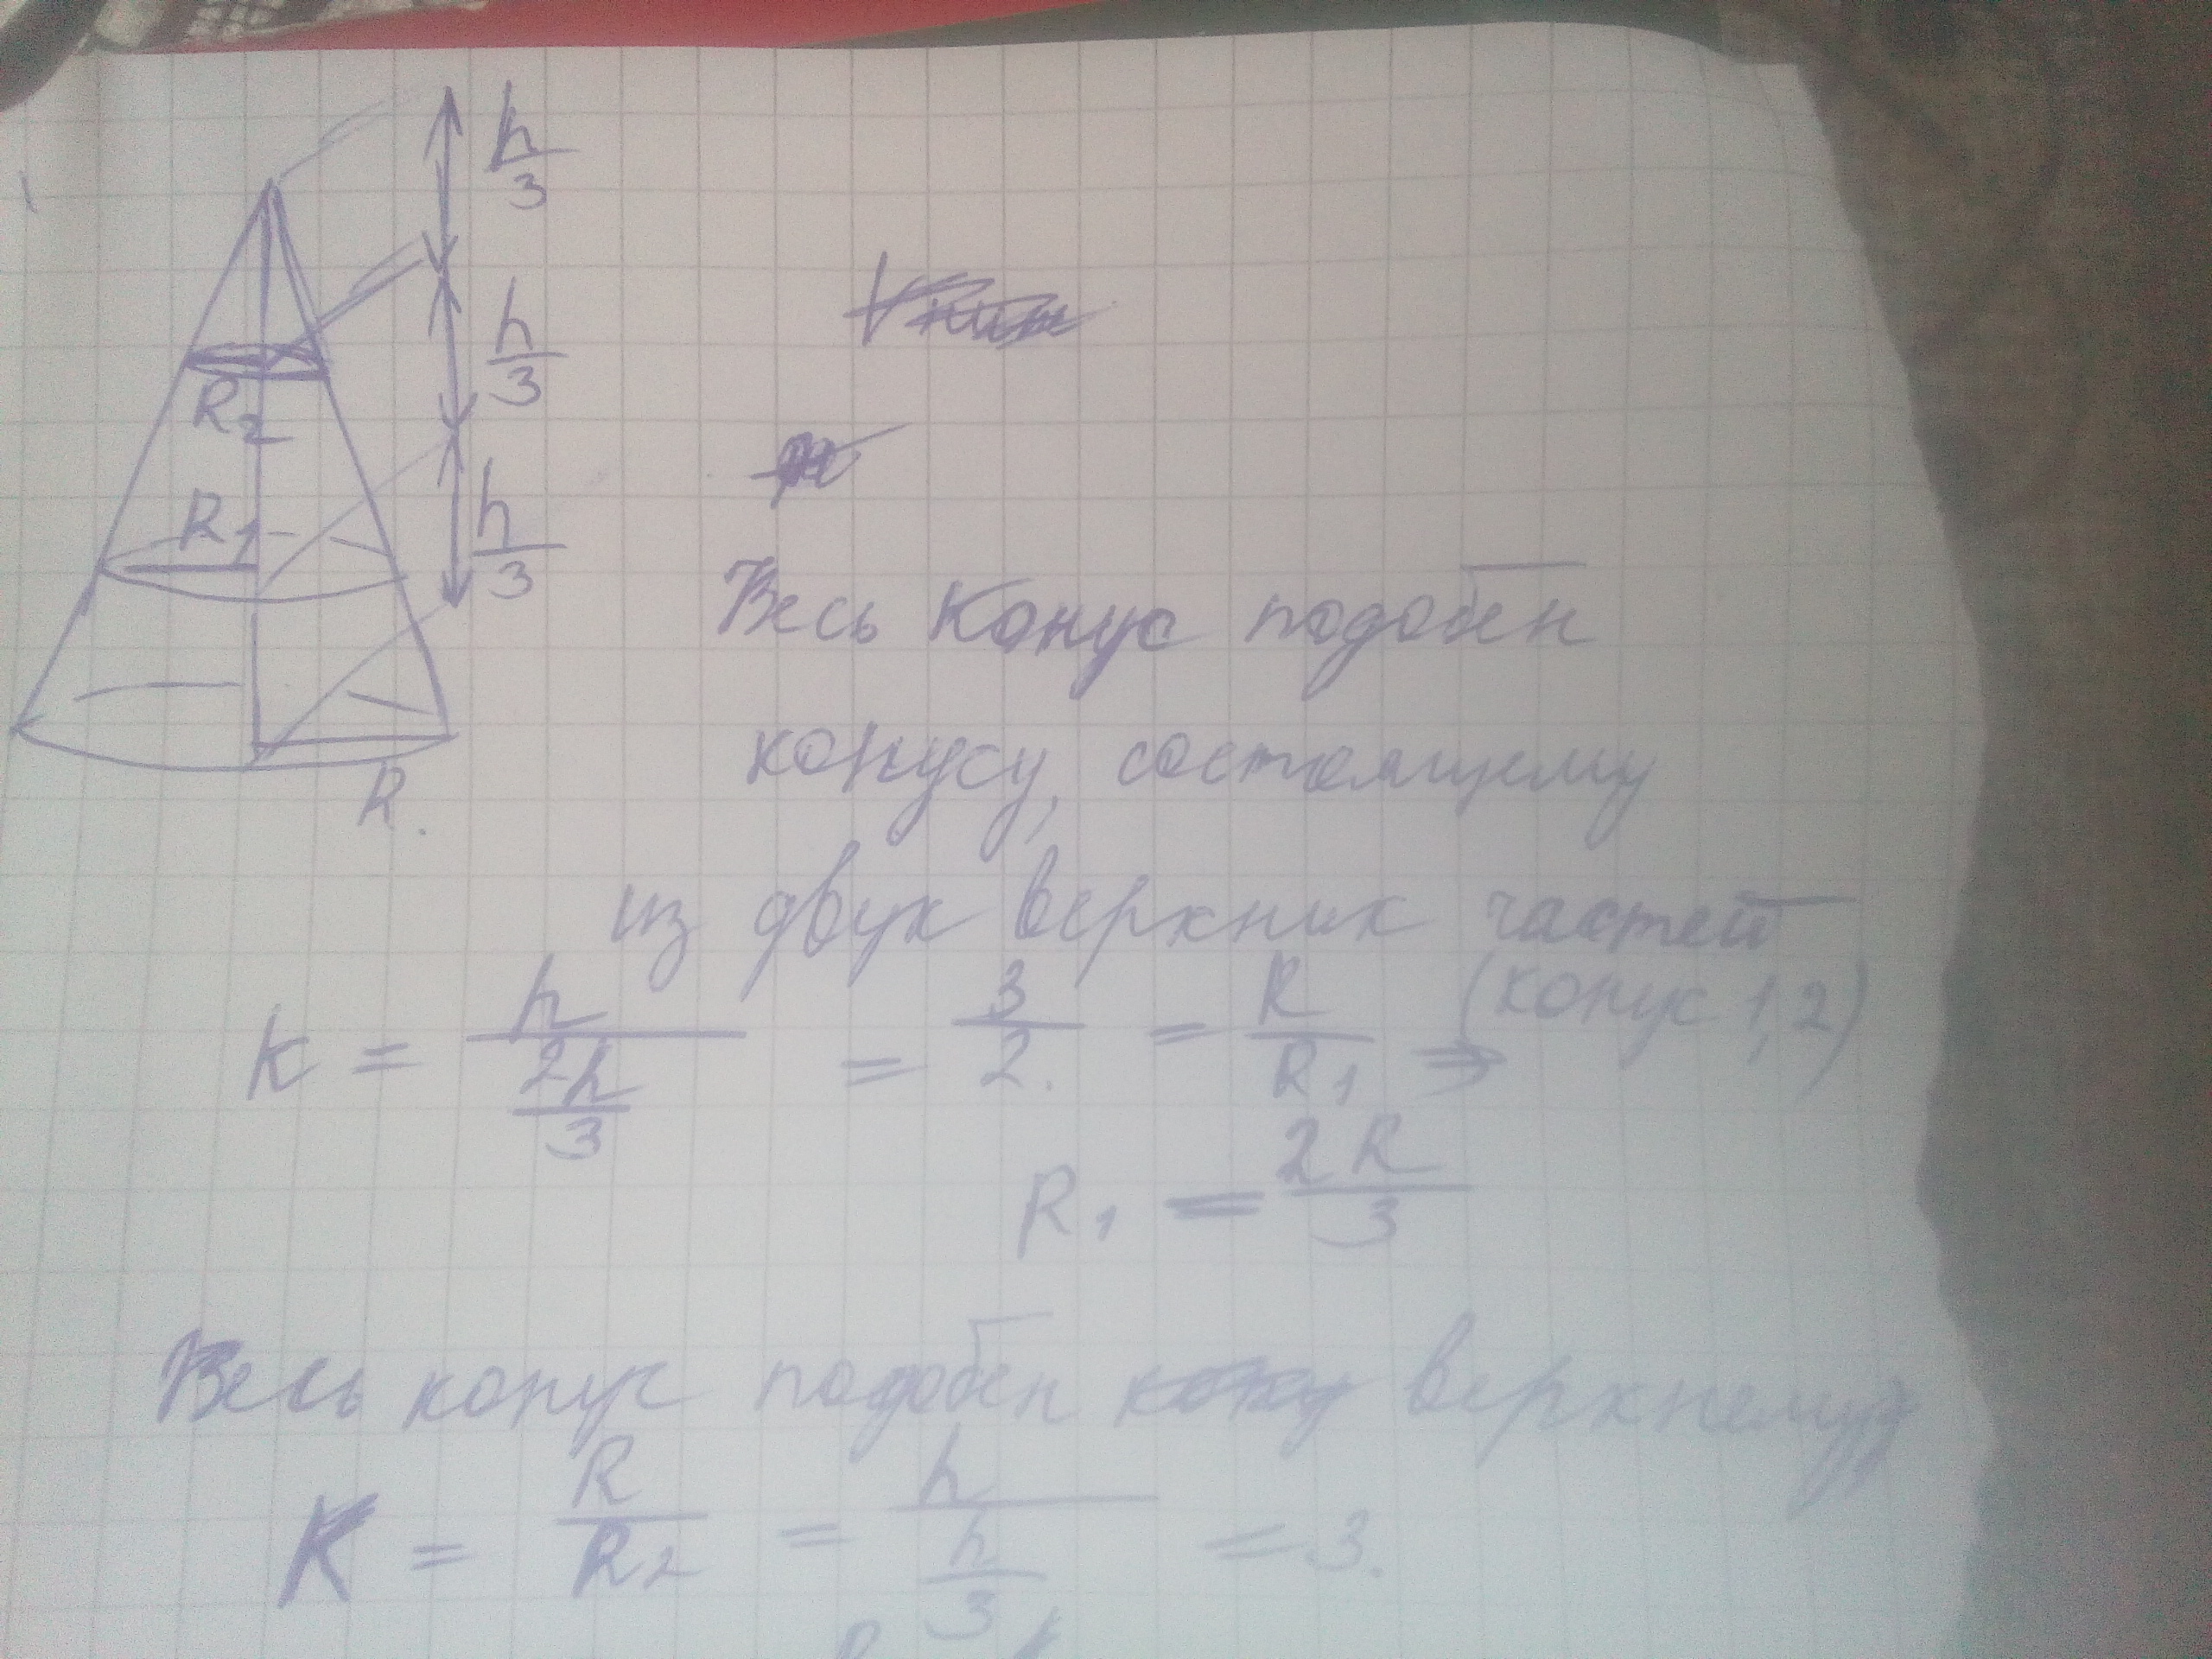 h/3
h/3
R2
R1
h/3
R.
Весь Конус подобен
конусу, состоящему
из двух верхних частей
(конус 1,2)
k = h/(2h/3) = 3/2. = R/R1 ⇒
R1 = 2R/3
Весь конус подобен верхнему
K = R/R2 = h/(h/3) = 3.